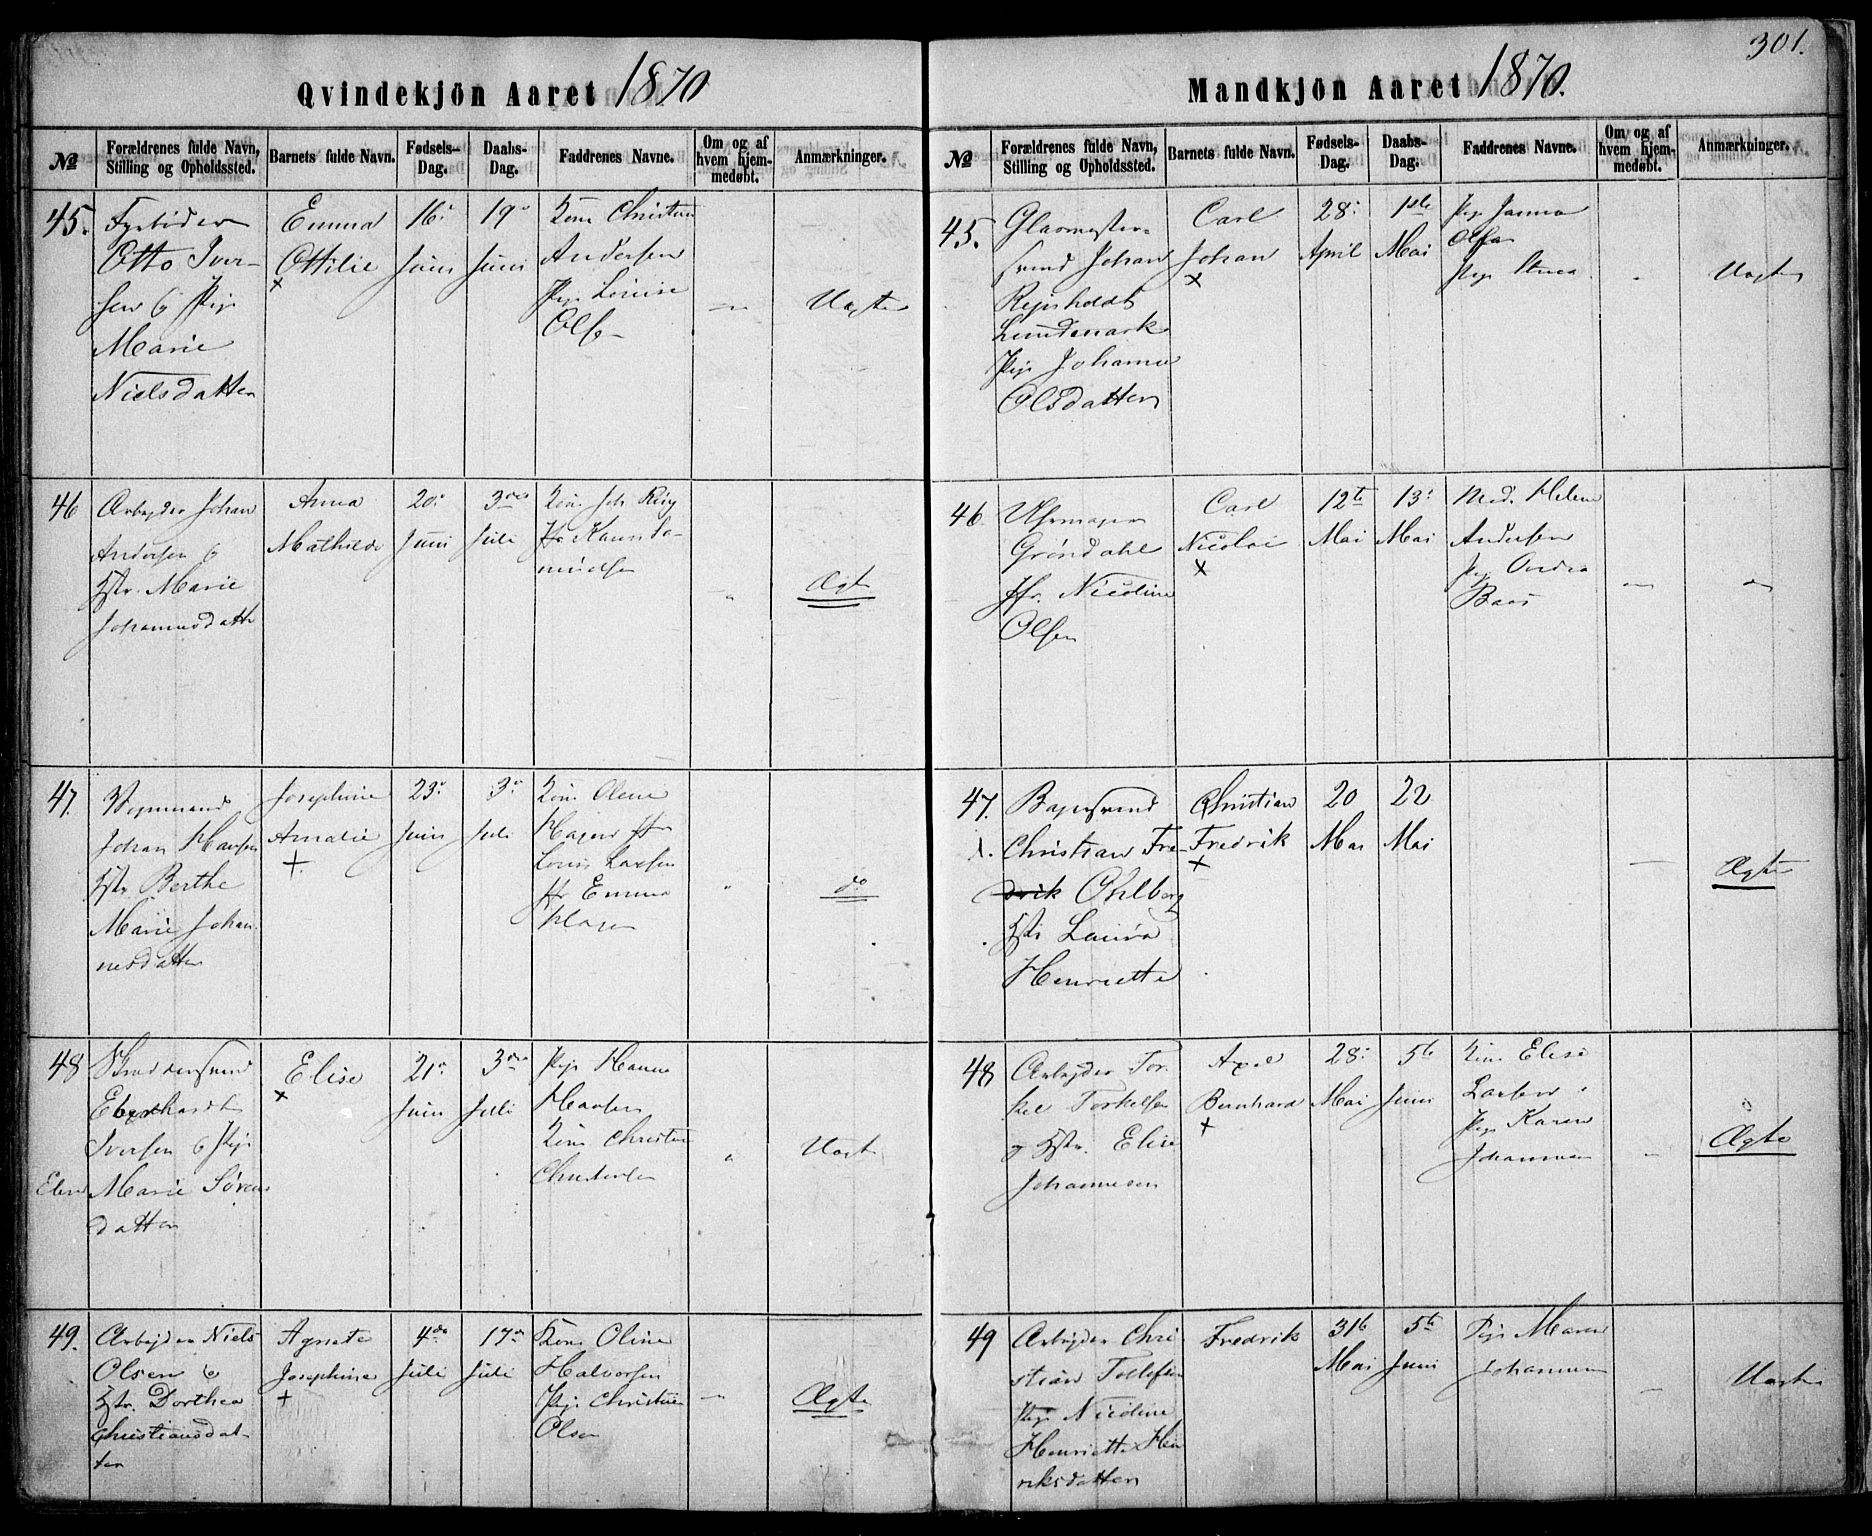 301.
Qvindekjön Aaret 1870
№
Forældrenes fulde Navn, Stilling og Opholdssted.
Barnets fulde Navn.
Fødsels-Dag.
Daabs-Dag.
Faddrenes Navne.
Om og af hvem hjem-medøbt.
Anmærkninger.
45.
Otto Iver-
sen & Pige
Marie
Nielsdatter
Emma
Ottilie
×
16
Juni
19
Juni
Kone Christine
Andersen
Pige Louise
Olsen
Uægte
46
Arbeider Johan
Andersen &
Hstr. Marie
Johannesdatter
Anna
Mathilde
20
Juni
3die
Juli
Ægte
47.
Vognmand
Johan Hansen
Hstr Berthe
Marie Johan-
nesdatter
Josephine
Amalie
+
23
Juni
3
Juli
Kone Olene
Hagen
Larsen
Emma
Hagen
do
48
Eberhardt
Iversen & Pige
Marie Sørens
datter
Elise
×
21
Juni
3die
Juli
Pige Hanna
Hansen
Kone Christine
Christensen
Uægte
49.
Arbeider Niels
Olsen &
Hstr. Dorthea
Christiansdat-
ter
Agnete
Josephine
+
4de
Juli
17de
Juli
Kone Oline
Halvorsen
Pige Christine
Olsen
Ægte
Mandkjön Aaret 1870.
№
Forældrenes fulde Navn, Stilling og Opholdssted.
Barnets fulde Navn.
Fødsels-Dag.
Daabs-Dag.
Faddrenes Navne.
Om og af hvem hjem-medøbt.
Anmærkninger.
45.
Glasmester-
svend Johan
Reinholdt
Lundemark
Pige Johanne
Olsdatter
Carl
Johan
×
28
April
1ste
Mai
Pige Janna
Olsen
Uægte
46
Uhrmager
Grøndahl
Jfr. Nicoline
Olsen
Carl
Nicolai
×
12te
Mai
13
Mai
Mad. Helene
Andersen
47.
Bagersvend
Christian Fre-
drik Ohlberg
Hstr Laura
Henriette
Christian
Fredrik
×
20
Mai
22
Mai
Ægte
48
Arbeider Tor-
kel Torkelsen
& Hstr. Elise
Johannesen
Axel
Bernhard
+
28
Mai
5te
Juni
Kone Elise
Larsen
Pige Karen
Johannesen
Ægte
49
Arbeider Chri
stian Tollefsen
Pige Nicoline
Henriette Hen
riksdatter
Fredrik
31te
Mai
5te
Juni
Pige Maren
Johannesen
Uægte